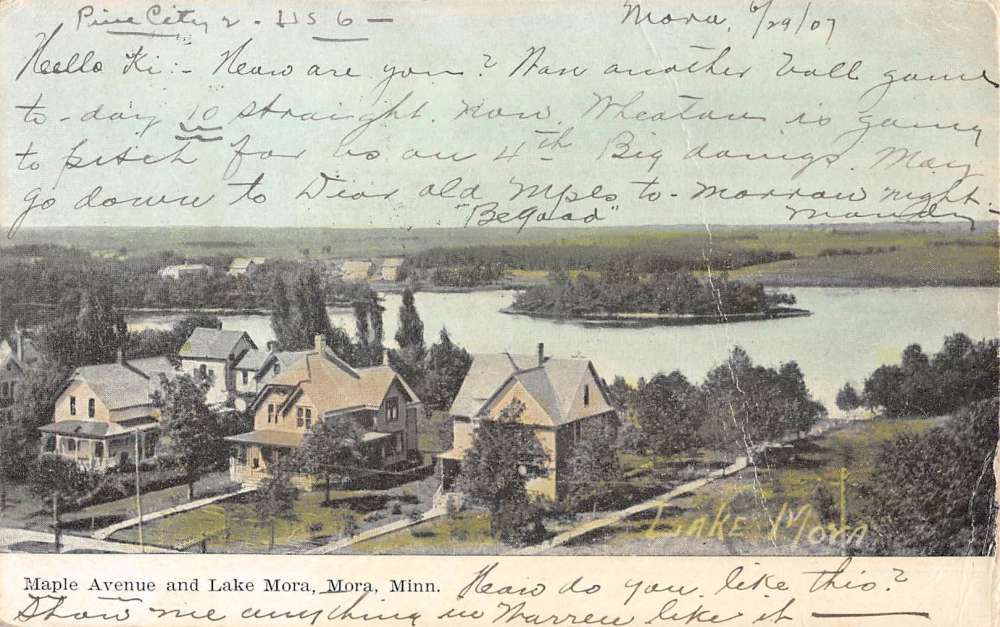 Pine City 2 - US 6 -
Mora, 6/29/07
Hello Ki:- How are you? Won another ball game
to-day 10 straight now. Wheaton is going
to pitch for us on 4th Big doings. May
go down to Dear old Mpls to-morrow night.
"BeGood"
LAKE MORA
Maple Avenue and Lake Mora, Mora, Minn. How do you like this?
Show me anything in Warren like it